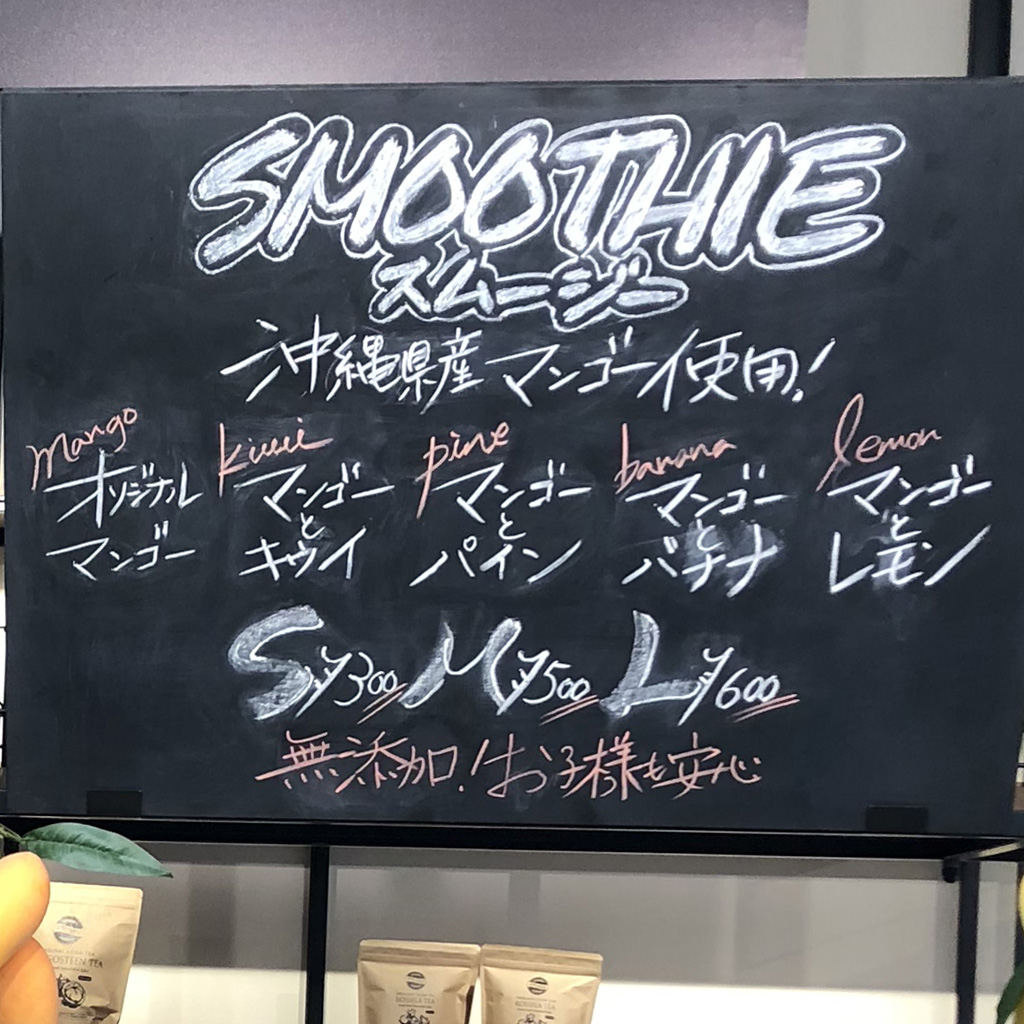 SMOOTHIE
スムージー
沖縄県産マンゴー使用!
mango kiwi pine banana lemon
オリジナル マンゴー マンゴー マンゴー マンゴー
と と と と
マンゴー キウイ パイン バナナ レモン
S ¥300 M ¥500 L ¥600
無添加!お子様も安心
GOSTEEN TEA
ROSELLA TEA
ROSELLA TEA